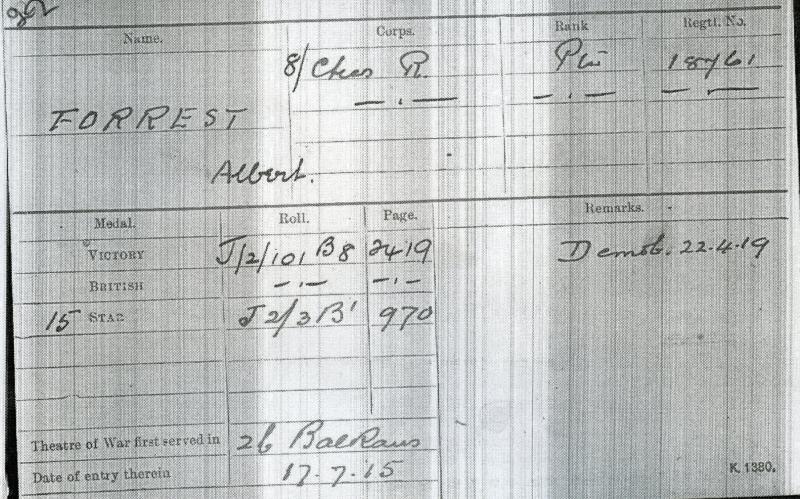 Name. Corps. Rank Regtl. No.
8/Ches R. Pte 18761
— . — — . — — . —
FORREST
Albert.
Medal. Roll. Page. Remarks.
VICTORY J/2/101 B8 2419 Demob. 22.4.19
BRITISH — . — — . —
15 STAR J 2/3 B' 970
Theatre of War first served in 2b Balkans
Date of entry therein 17.7.15
K. 1380.